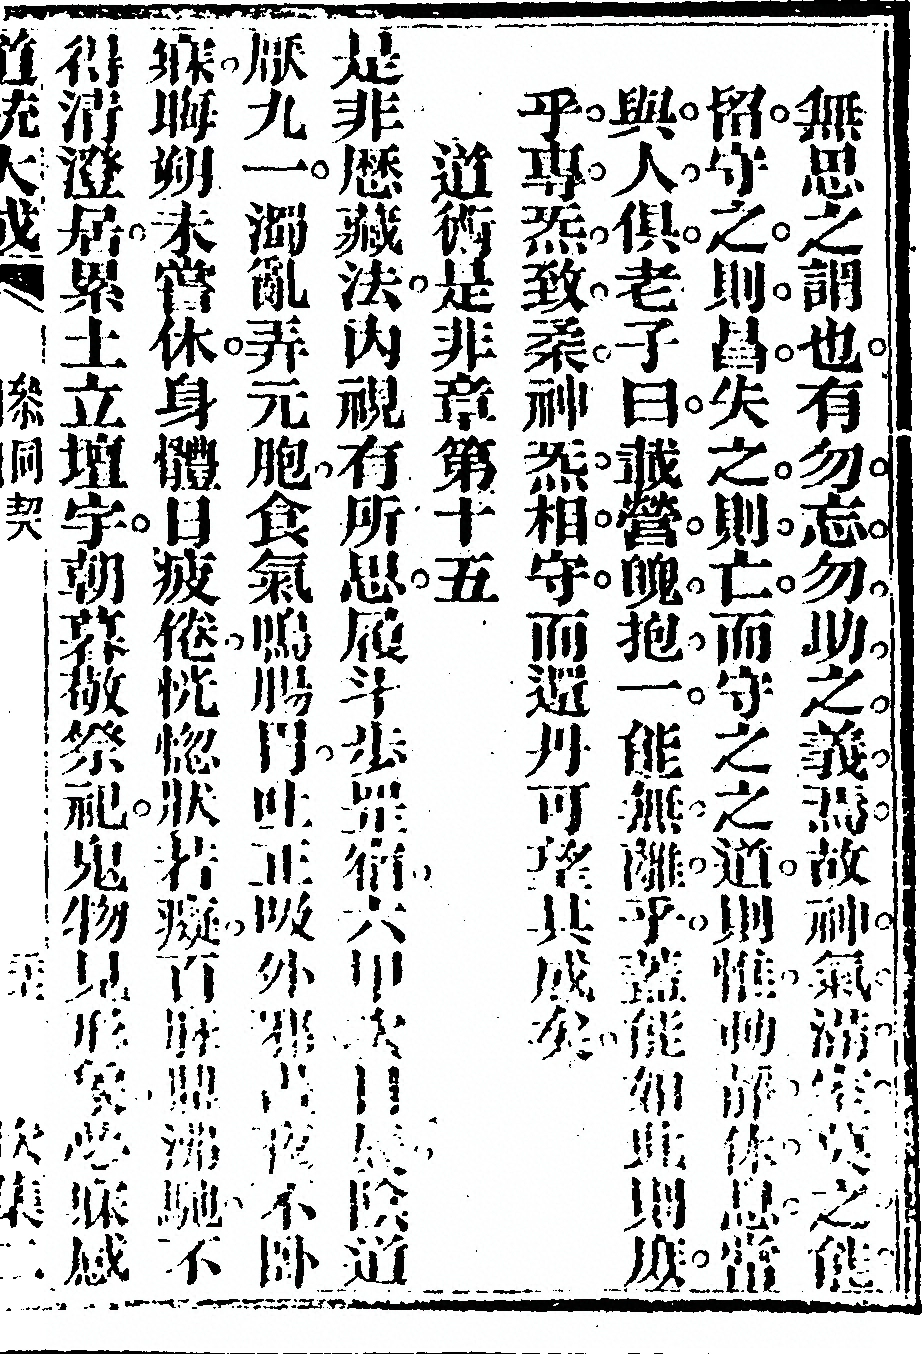 無思之謂也有勿忘勿助之義焉故神氣滿室莫之能
留守之則昌失之則亡而守之之道則惟動靜休息常
與人俱老子曰載營魄抱一能無離乎蓋能如此則庶
乎專炁致柔神炁相守而還丹可望其成矣
道術是非章第十五
是非歷藏法內視有所思履斗步罡宿六甲次日辰陰道
厭九一濁亂弄元胞食氣鳴腸胃吐正吸外邪晝夜不臥
寐晦朔未嘗休身體日疲倦恍惚狀若癡百脉鼎沸馳不
得清澄居累土立壇宇朝暮敬祭祀鬼物見形象夢寐感
道統大成 叅同契